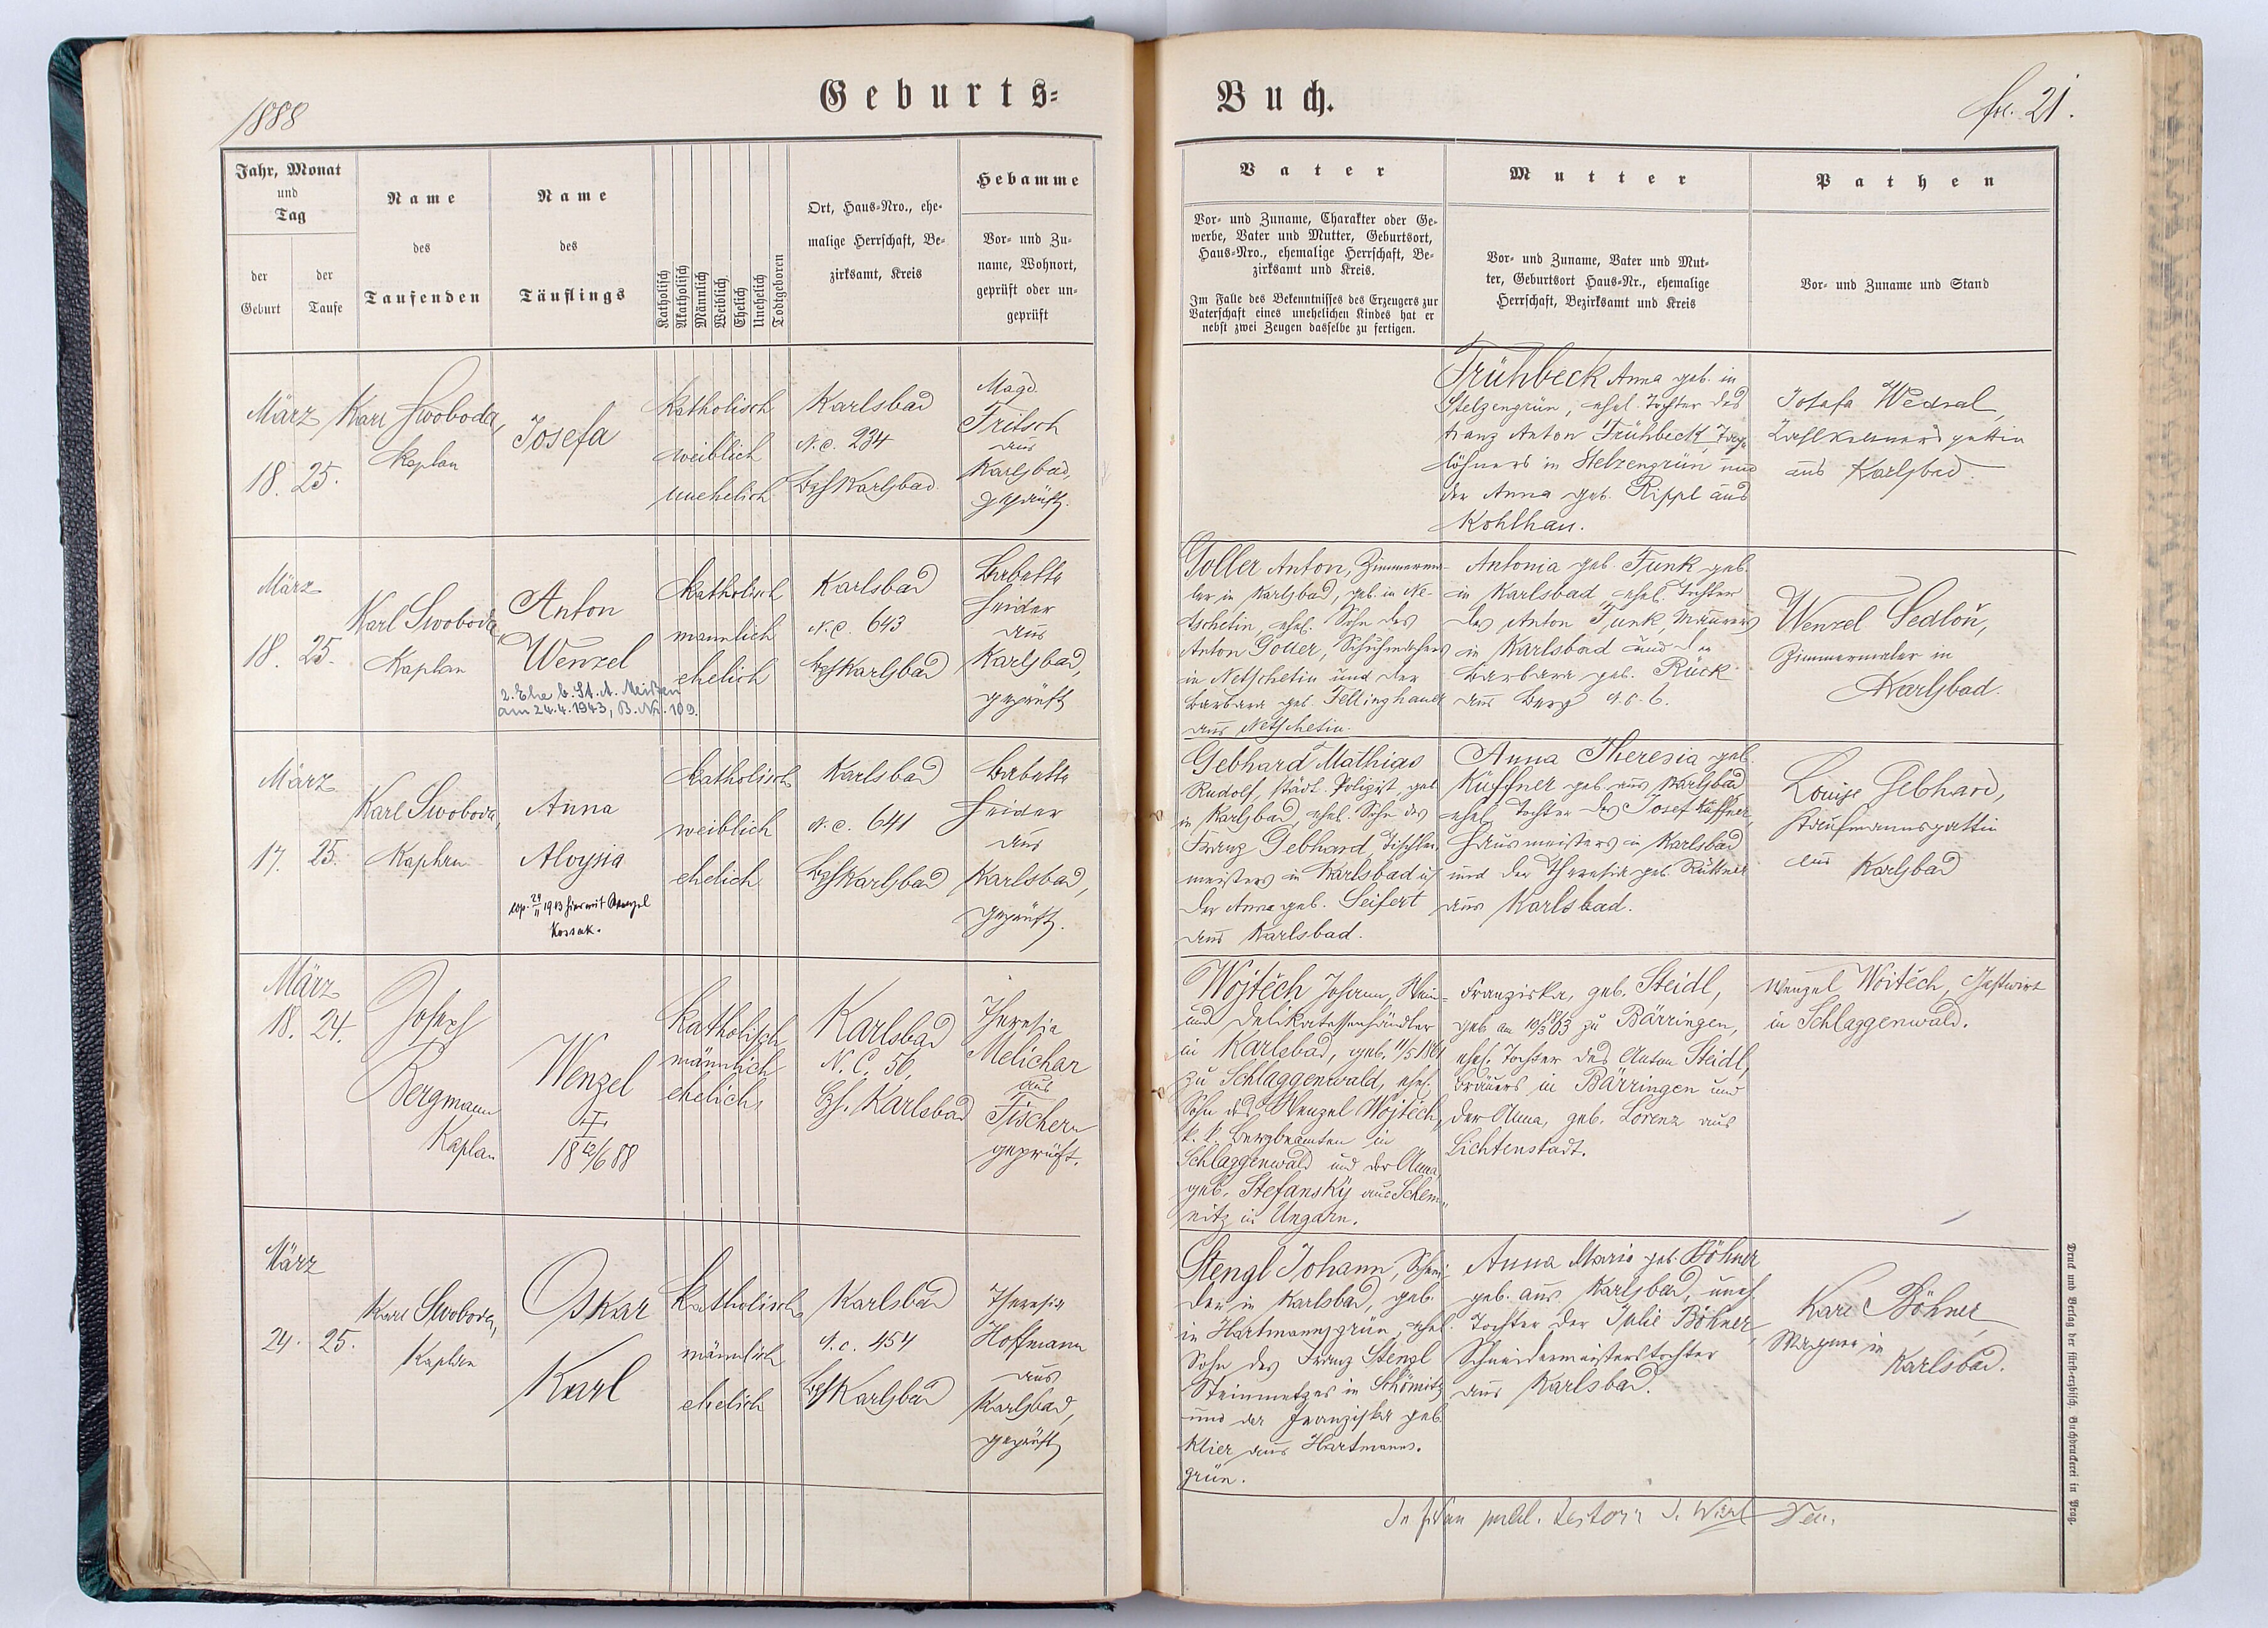 1888
Geburts-
Buch.
fol. 21.
Jahr, Monat
und
Tag
der
Geburt
der
Taufe
Name
des
Taufenden
Name
des
Täuflings
Katholisch
Akatholisch
Männlich
Weiblich
Ehelich
Unehelich
Todtgeboren
Ort, Haus-Nro., ehe-
malige Herrschaft, Be-
zirksamt, Kreis
Hebamme
Vor- und Zu-
name, Wohnort,
geprüft oder un-
geprüft
Vater
Vor- und Zuname, Charakter oder Ge-
werbe, Vater und Mutter, Geburtsort,
Haus-Nro., ehemalige Herrschaft, Be-
zirksamt und Kreis.
Im Falle des Bekenntnisses des Erzeugers zur
Vaterschaft eines unehelichen Kindes hat er
nebst zwei Zeugen dasselbe zu fertigen.
Mutter
Vor- und Zuname, Vater und Mut-
ter, Geburtsort Haus-Nr., ehemalige
Herrschaft, Bezirksamt und Kreis
Pathen
Vor- und Zuname und Stand
März
18. 25.
Karl Swoboda,
Kaplan
Josefa
katholisch
weiblich
unehelich
Karlsbad
N.C. 234
Bzh Karlsbad
Magd.
Fritsch
aus
Karlsbad,
geprüft.
Frühbeck Anna geb. in
Stelzengrün, ehel. Tochter des
Franz Anton Frühbeck, Tag-
löhners in Stelzengrün und
der Anna geb. Rippl aus
Kohlhau.
Josefa Wedral,
Zahlkellnersgattin
aus Karlsbad.
März
18. 25.
Karl Swoboda
Kaplan
Anton
Wenzel
2. Ehe b. St. A. Meißen
am 24.4.1943, B. Nr. 109.
katholisch
männlich
ehelich
Karlsbad
N.C. 643
Bzh Karlsbad
Babette
Heider
aus
Karlsbad,
geprüft
Goller Anton, Zimmerma-
ler in Karlsbad, geb. in Ne-
tschetin, ehel. Sohn des
Anton Goller, Schuhmachers
in Netschetin und der
Barbara geb. Fellinghauer
aus Netschetin.
Antonia geb. Funk geb.
in Karlsbad, ehel. Tochter
des Anton Funk, Maurers
in Karlsbad und der
Barbara geb. Rück
aus Berg N.C. 6.
Wenzel Sedloň,
Zimmermaler in
Karlsbad.
März
17. 25.
Karl Swoboda,
Kaplan
Anna
Aloysia
cop. 24/11 1913 hier mit Wenzel
Kossak.
katholisch
weiblich
ehelich
Karlsbad
N.C. 641
Bzh Karlsbad
Babette
Heider
aus
Karlsbad,
geprüft.
Gebhard Mathias
Rudolf, städt. Polizist, geb
in Karlsbad, ehel. Sohn des
Franz Gebhard, Tischler-
meisters in Karlsbad u
der Anna geb. Seifert
aus Karlsbad.
Anna Theresia geb.
Küffner geb. aus Karlsbad
ehel. Tochter des Josef Küffner,
Hausmeisters in Karlsbad
und der Theresia geb.
aus Karlsbad.
Louise Gebhard,
Kaufmannsgattin
aus Karlsbad
März
18. 24.
Joseph
Bergmann
Kaplan
Wenzel
†
18 12/6 88
Katholisch
männlich
ehelich
Karlsbad
N.C. 56,
Bzh. Karlsbad
Theresia
Melichar
aus
Fischern
geprüft.
Wojtěch Johann, Wein-
und Delikatessenhändler
in Karlsbad, geb. 11/5 1861
zu Schlaggenwald, ehel.
Sohn des Wenzel Wojtěch,
k. k. Bergbeamten in
Schlaggenwald und der Anna,
geb. Stefansky aus Schem-
nitz in Ungarn.
Franziska, geb. Steidl,
geb. am 10/3 63 zu Bärringen,
ehel. Tochter des Anton Steidl,
Bräuers in Bärringen und
der Anna, geb. Lorenz aus
Lichtenstadt.
Wenzel Woitěch, Gastwirt
in Schlaggenwald.
März
24. 25.
Karl Swoboda,
Kaplan
Oskar
Karl
Katholisch
männlich
ehelich
Karlsbad
N.C. 454
Bzh Karlsbad
Theresia
Hoffmann
aus
Karlsbad,
geprüft
Stengl Johann, Schnei-
der in Karlsbad, geb.
in Hartmannsgrün, ehel.
Sohn des Franz Stengl
Steinmetzes in Schömitz
und der Franziska geb.
Klier aus Hartmanns-
grün.
Anna Maria geb. Böhner
geb. aus Karlsbad, unehl.
Tochter der Julie Böhner,
Schneidermeisterstochter
aus Karlsbad.
Karl Böhner
Wagner in
Karlsbad.
Druck und Verlag der fürst-erzbisch. Buchdruckerei in Prag.